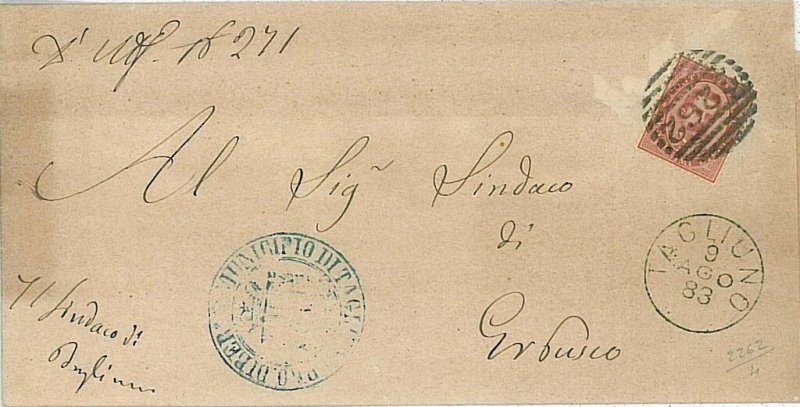 D'Uff. N° 271
Al Sig.r Sindaco
di
Erbusco
Il Sindaco di
Tagliuno
MUNICIPIO DI TAGLIUNO
PRO. DI BER
TAGLIUNO
9
AGO
83
2262
4